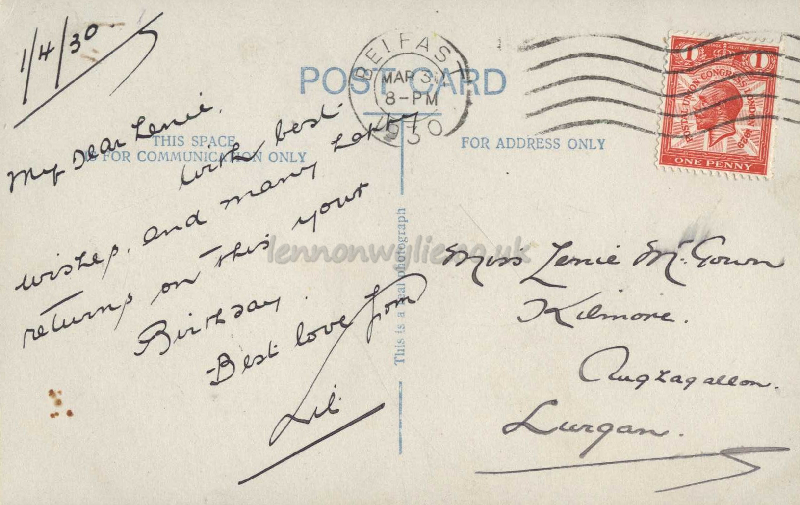 1/4/30
POST CARD
BELFAST
MAR 30
8-PM
1930
THIS SPACE
IS FOR COMMUNICATION ONLY
FOR ADDRESS ONLY
1 1
POSTAL UNION CONGRESS LONDON 1929
ONE PENNY
My Dear Lenie,
With best
wishes, and many happy
returns on this your
Birthday.
Best love from
Lil
This is a real photograph
lennonwylie.co.uk
Miss Lenie McGown
Kilmore.
Aughagallon.
Lurgan.